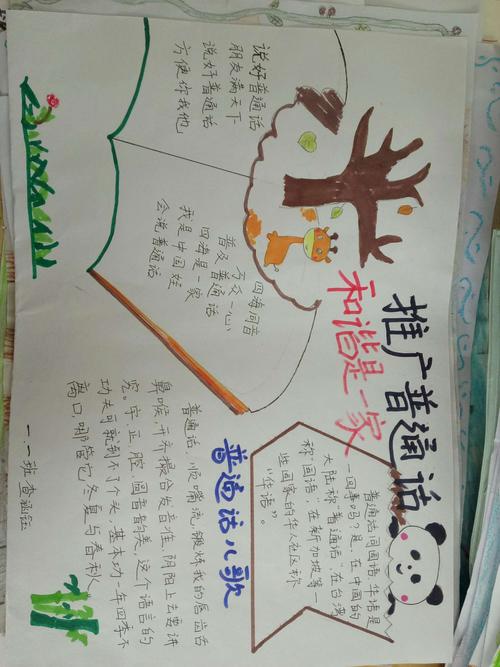 推广普通话
和谐是一家
说好普通话
朋友满天下
说好普通话
方便你我他
四海同音
万众一心
普及普通话
四海是一家
我是中国娃
会说普通话
普通话同国语、华语是
一回事吗?是,在中国的
大陆称"普通话",在台湾
称"国语",在新加坡等一
些国家的华人社区称
"华语"。
普通话儿歌
普通话,顺嘴流,锻炼我的唇齿舌
鼻喉,开齐撮合发音准,阴阳上去要讲
究。字、正、腔、圆音韵美,这个语言的
功夫可就到不了个头,基本功一年四季不
离口,哪管它冬夏与春秋
一.一班 查涵